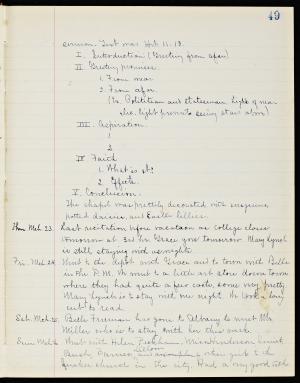 49
sermon. Text was Heb 11:13.
I. Introduction (Greeting from afar)
II. Greeting promises
1. From near
2. From afar.
(Ex. Politician and statesman, light of near
, light from to seeing stars above)
III. Aspiration.
1
2
IV Faith
1. What is it?
2. Effects.
V. Conclusion.
The chapel was prettily decorated with
potted daisies, and Easter lillies.
Thur. Mch. 23. Last recitation before vacation as college closes
tomorrow at 3rd hr. Grace goes tomorrow. Mary Lynch
is still staying out overnight.
Fri. Mch. 24. Went to the depot with Grace and to town with Belle
in the P.M. We went to a little art store down town
where they had quite a few casts, some very pretty.
Mary Lynch is to stay with me to night. We took a long
cut to read.
Sat. Mch. 25. Belle Freeman has gone to Albany to meet Mr.
Miller who is to stay with her this week.
Sun. Mch. 26. Went with Helen, Miss Henderson,
and when girls to the
church in the city. Had a very good